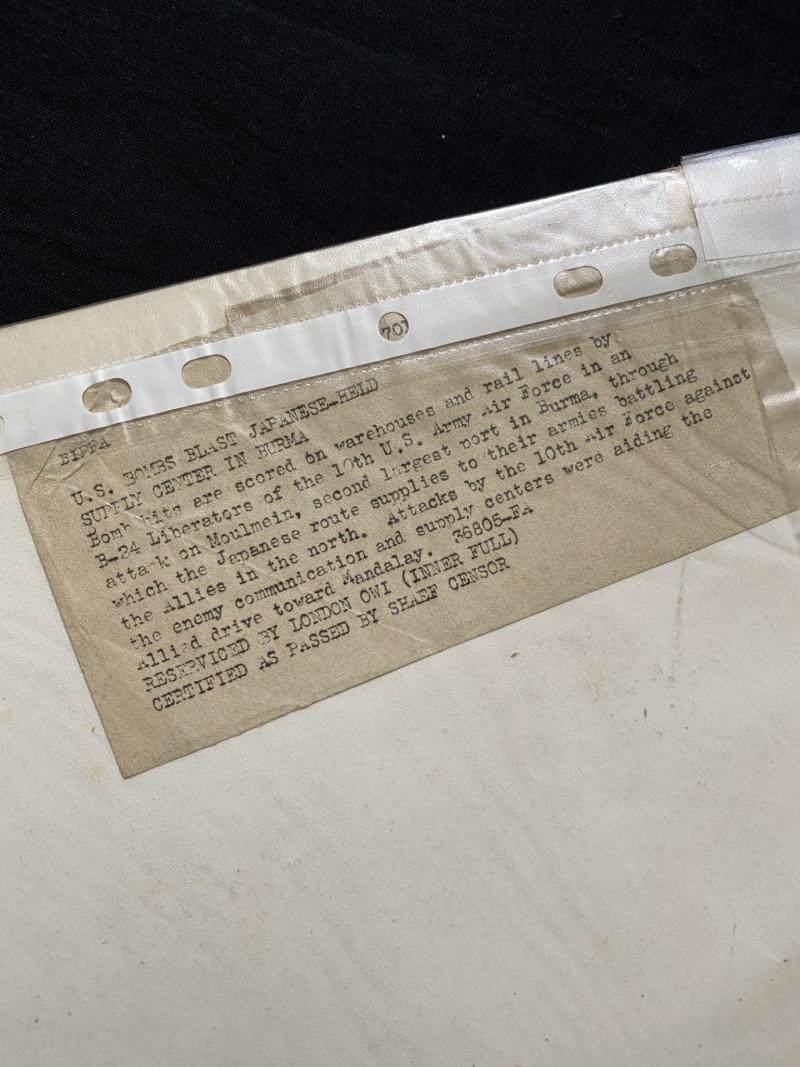 701
BIPPA
U.S. BOMBS BLAST JAPANESE-HELD
SUPPLY CENTER IN BURMA
Bomb hits are scored on warehouses and rail lines by
B-24 Liberators of the 10th U.S. Army Air Force in an
attack on Moulmein, second largest port in Burma, through
which the Japanese route supplies to their armies battling
the Allies in the north. Attacks by the 10th Air Force against
the enemy communication and supply centers were aiding the
Allied drive toward Mandalay. 36805-FA
RESERVICED BY LONDON OWI (INNER FULL)
CERTIFIED AS PASSED BY SHAEF CENSOR